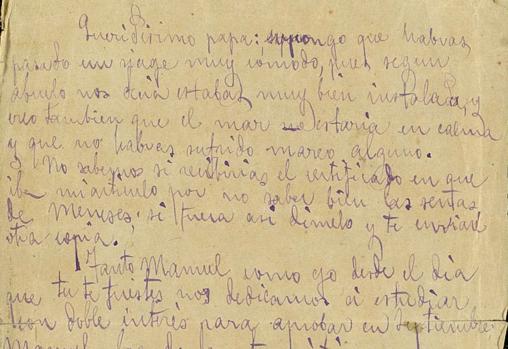 Queridisimo papa: supongo que habras
pasado un viage muy comodo, pues segun
abuelo nos decia estabas muy bien instalado, y
creo tambien que el mar estaria en calma
y que no habras sufrido mareo alguno.
No sabemos si recibirias el certificado en que
iba mi articulo por no saber bien las señas
de Meneses. si fuera asi dimelo y te enviaré
otra copia.
Tanto Manuel como yo desde el dia
que tu te fuestes nos dedicamos a estudiar
con doble interés para aprobar en Septiembre
Manuel